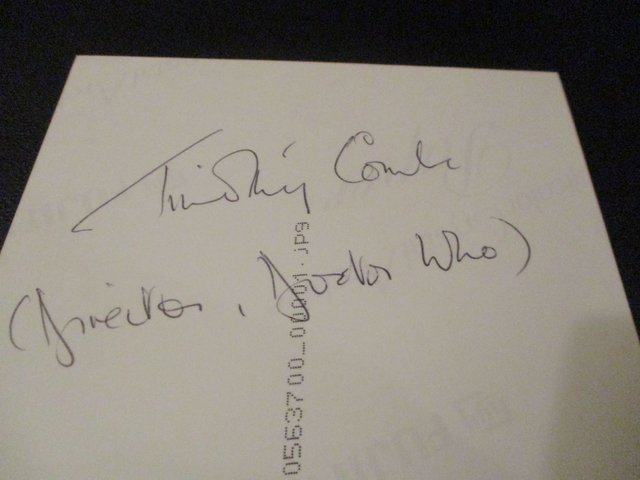 Timothy Combe
(Director, Doctor Who)
0563700_00001.jpg
FUJI